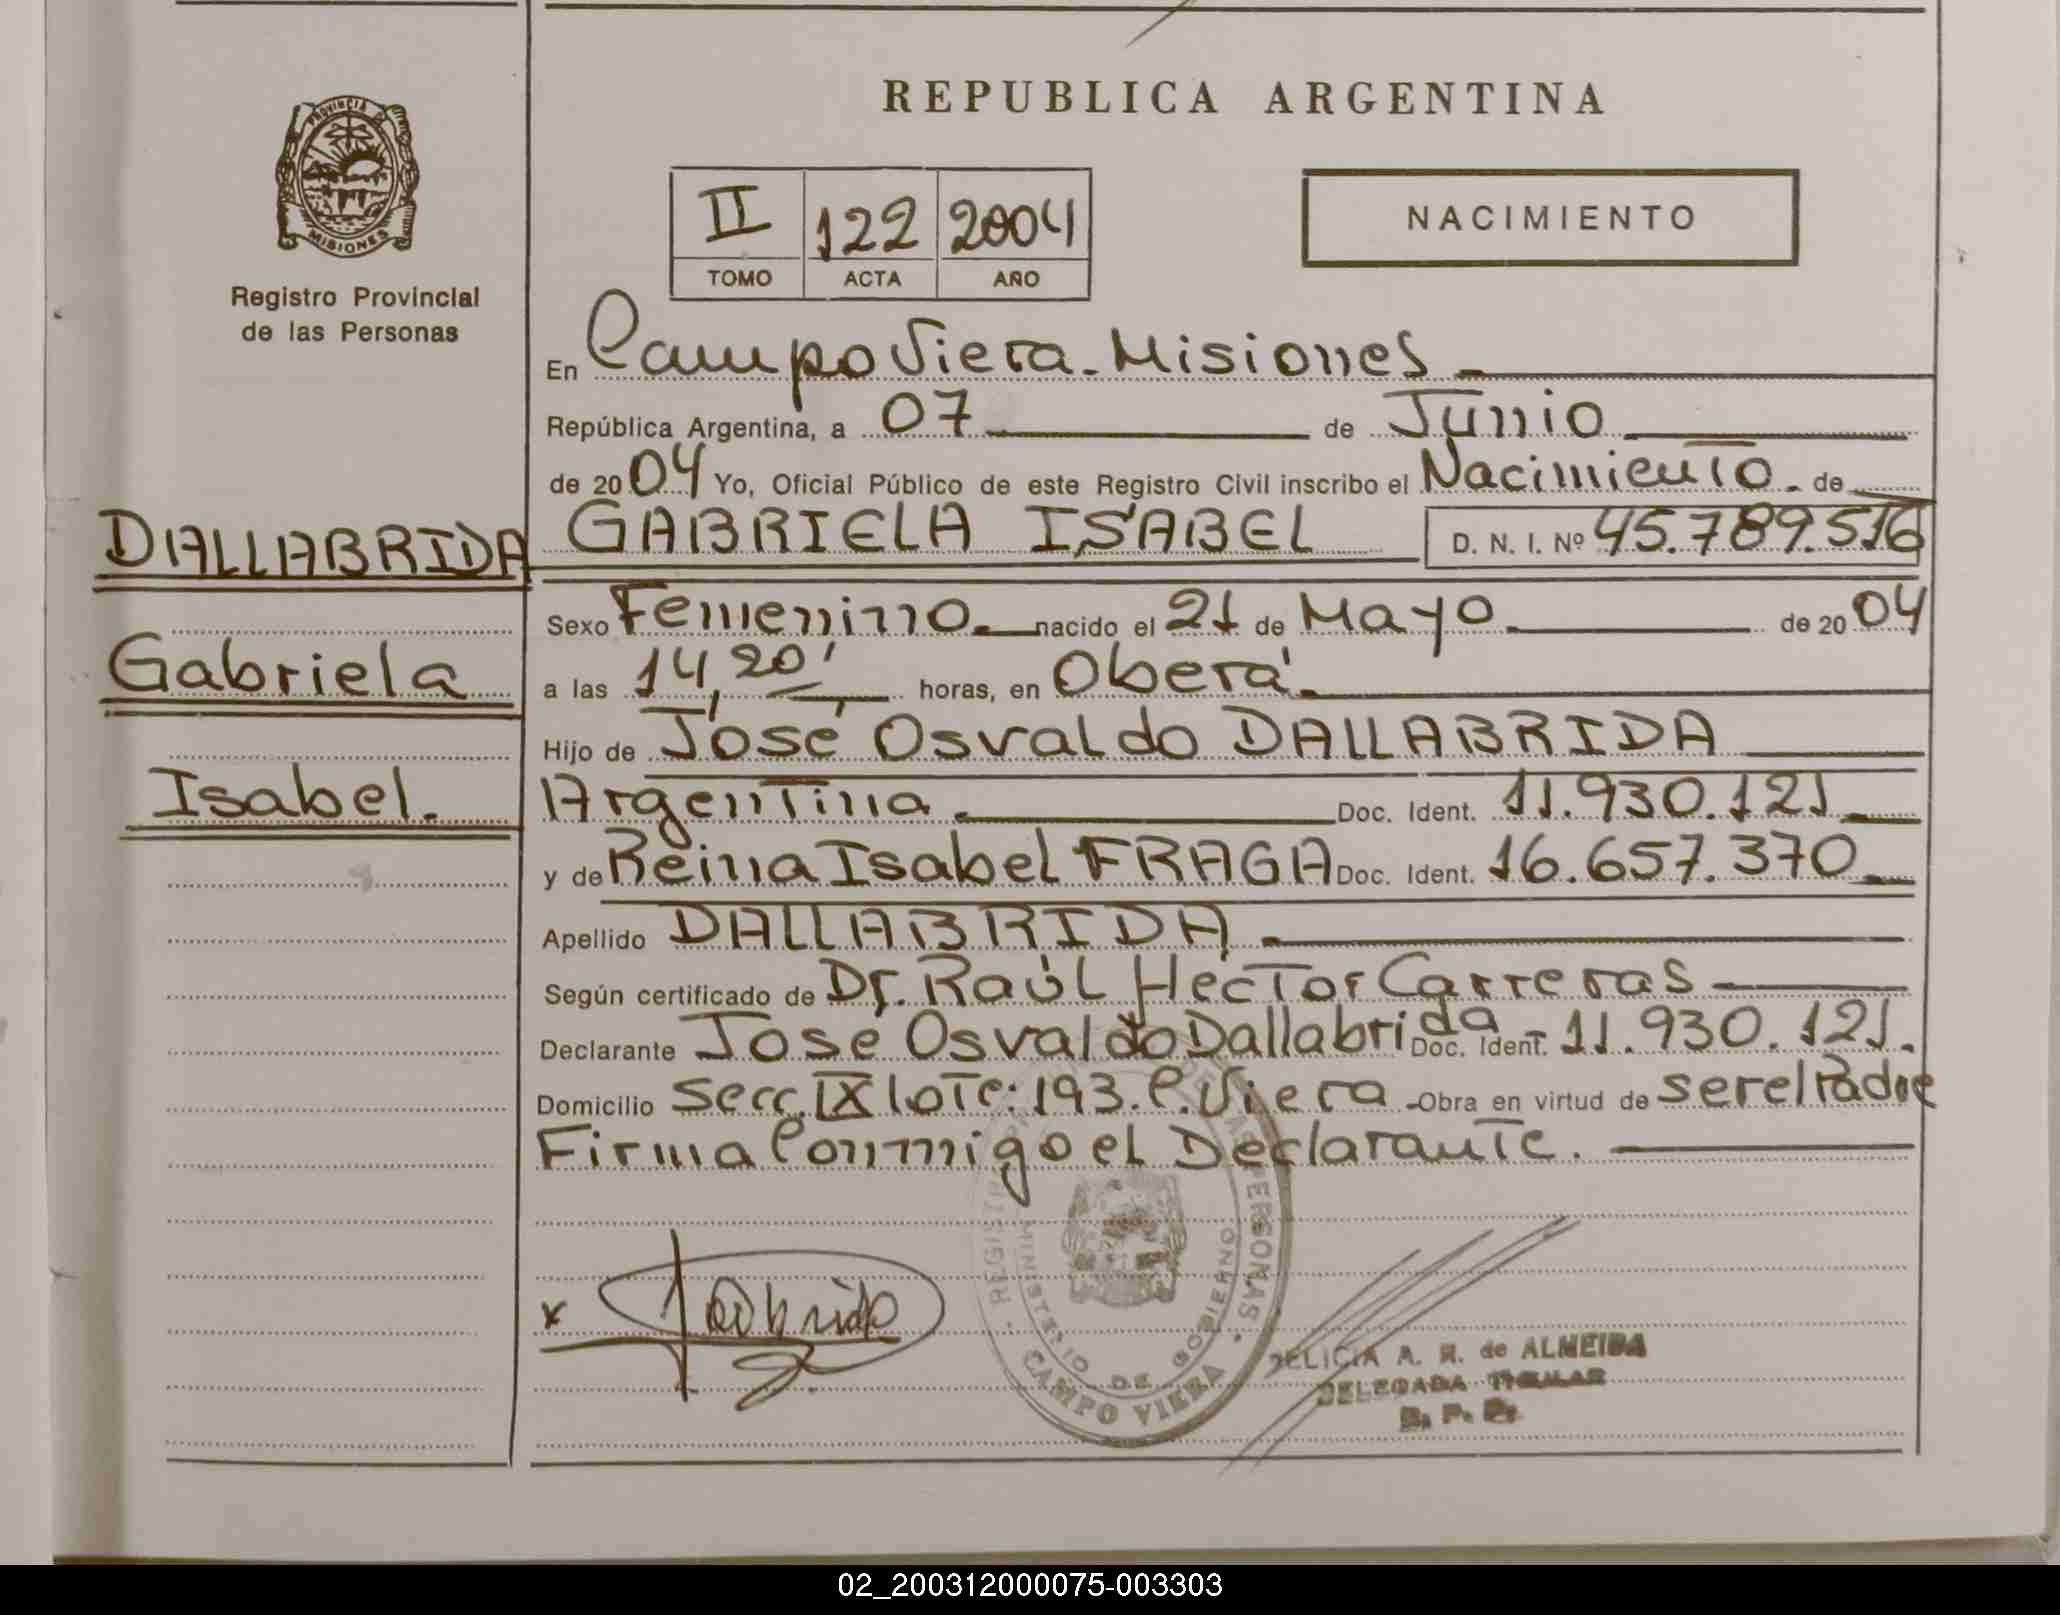 REPUBLICA ARGENTINA
PROVINCIA DE
MISIONES
Registro Provincial
de las Personas
II 122 2004
TOMO ACTA AÑO
NACIMIENTO
En Campo Viera - Misiones
República Argentina, a 07 de Junio
de 2004 Yo, Oficial Público de este Registro Civil inscribo el Nacimiento. de
DALLABRIDA GABRIELA ISABEL D. N. I. Nº 45.789.516
Sexo Femenino. nacido el 21 de Mayo de 2004
Gabriela
a las 14,20' horas, en Oberá.
Hijo de José Osvaldo DALLABRIDA
Isabel.
Argentina. Doc. Ident. 11.930.121
y de Reina Isabel FRAGA Doc. Ident. 16.657.370
Apellido DALLABRIDA
Según certificado de Dr. Raúl Hector Carreras
Declarante Jose Osvaldo Dallabrida Doc. Ident. 11.930.121.
Domicilio Secc. IX lote: 193. C. Viera - Obra en virtud de ser el Padre
Firma Conmigo el Declarante.
REGISTRO DE LAS PERSONAS
MINISTERIO DE GOBIERNO
CAMPO VIERA
x
DELICIA A. R. de ALMEIDA
DELEGADA TITULAR
R. P. P.
02_200312000075-003303